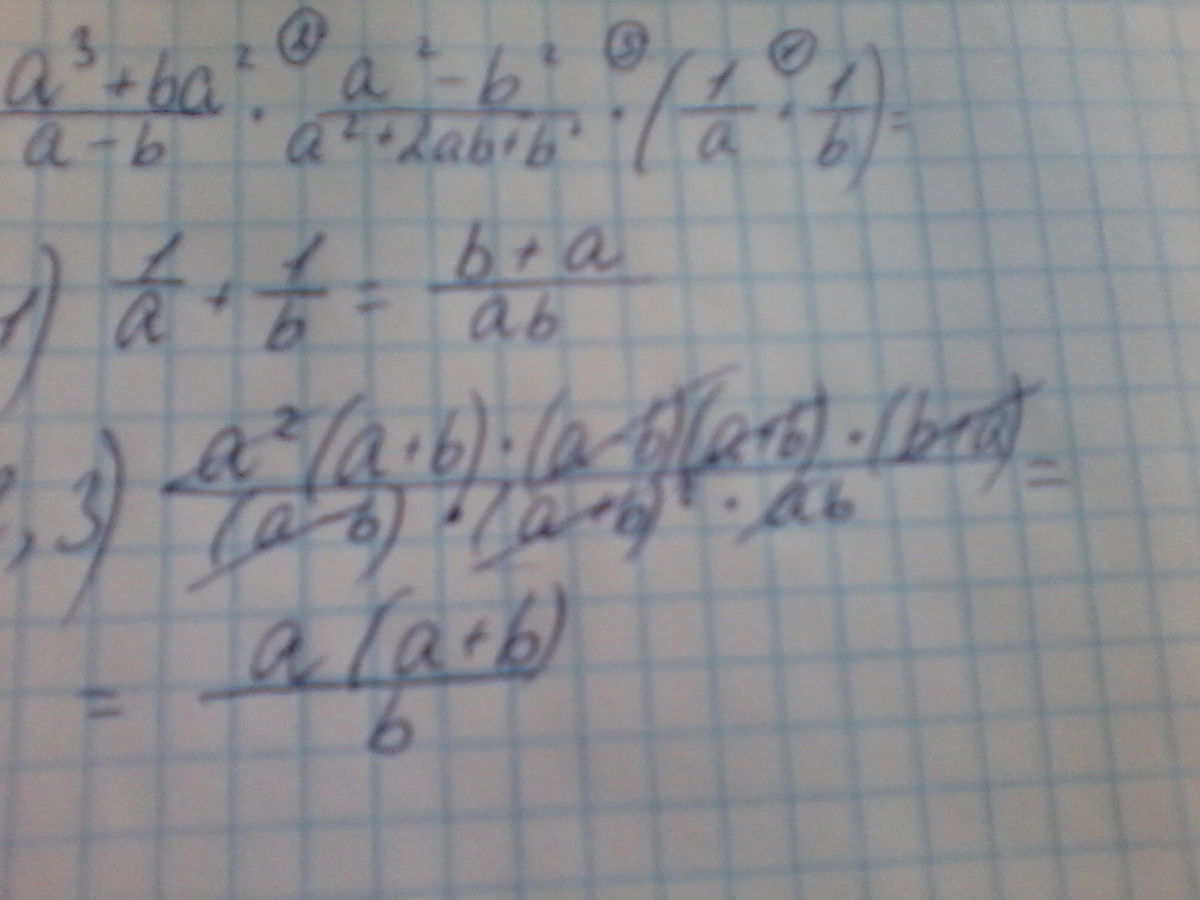 ② ③ ①
(a³+ba²)/(a-b) · (a²-b²)/(a²+2ab+b²) · (1/a + 1/b) =
1) 1/a + 1/b = (b+a)/(ab)
2,3) (a²(a+b)·(a-b)(a+b)·(b+a))/((a-b)·(a+b)²·ab) =
= (a(a+b))/b